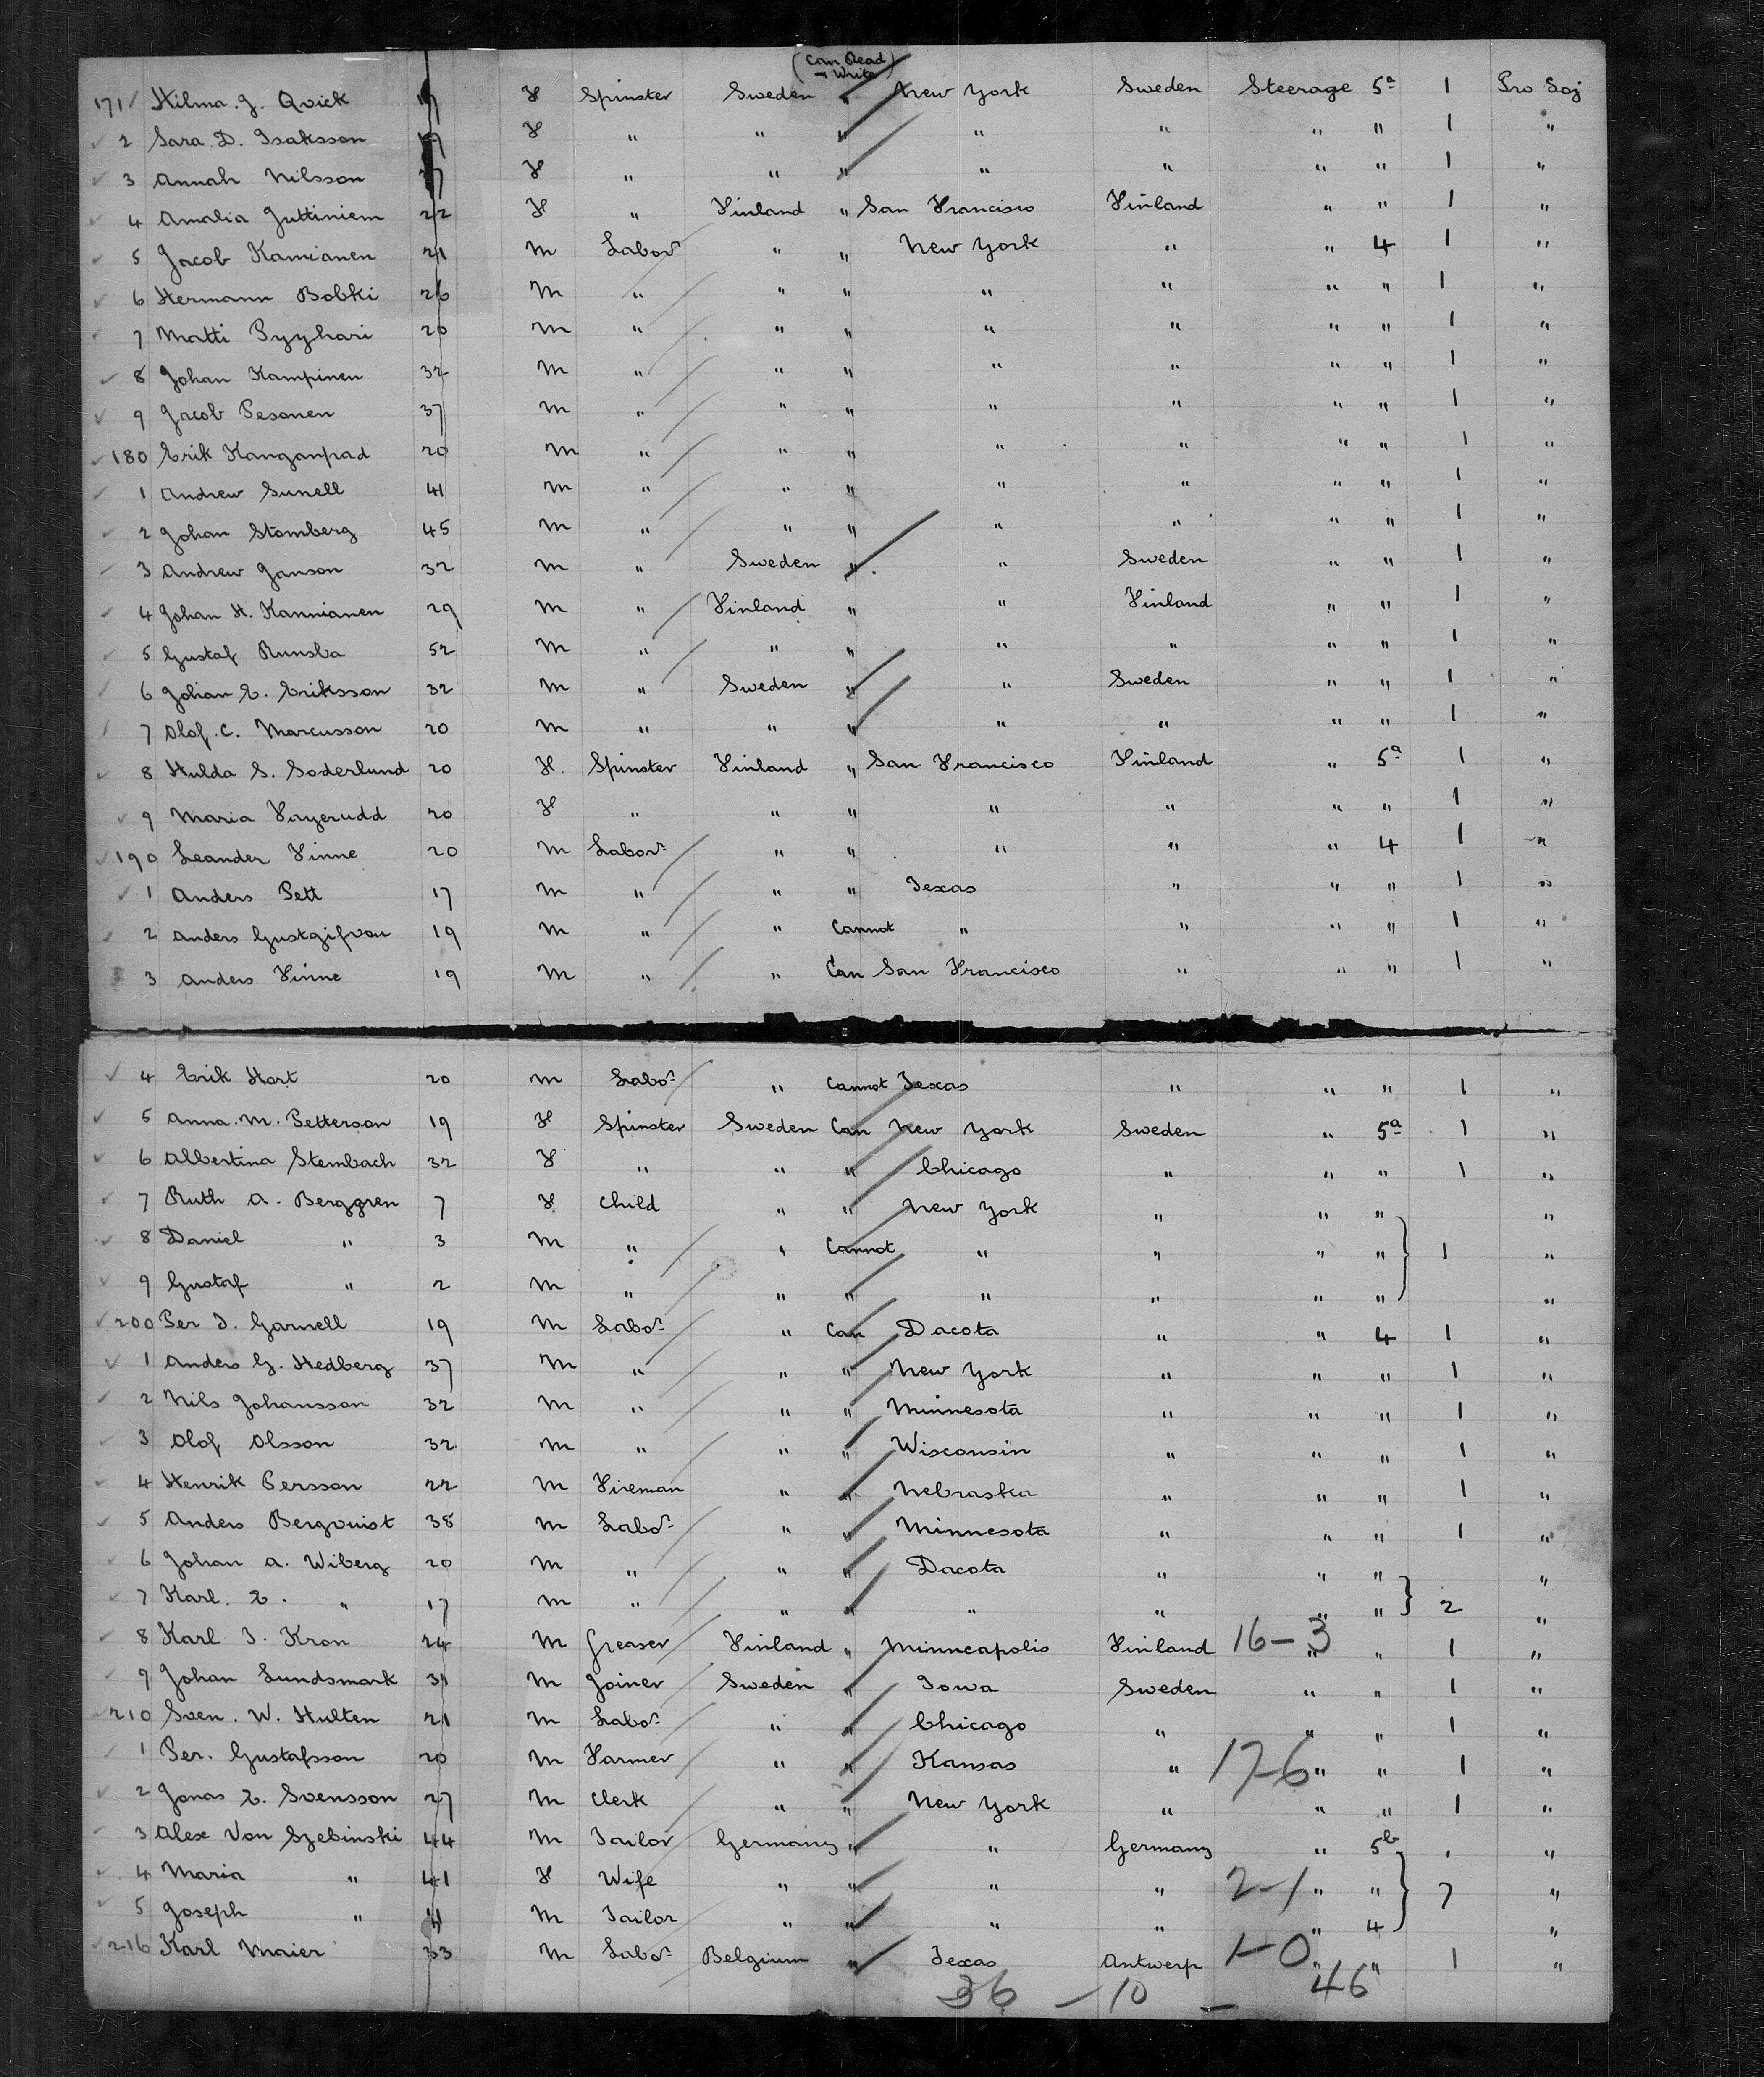 (Can Read
→ Write)
171 Hilma. J. Qvick F Spinster Sweden " New York Sweden Steerage 5a 1 Pro Soj
2 Sara. D. Isaksson F " " " " " " " 1 "
3 Annah Nilsson F " " " " " " " 1 "
4 Amalia Juttiniem 22 F " Finland " San Francisco Finland " " 1 "
5 Jacob Kamianen 21 M Labor " " New York " " 4 1 "
6 Hermann Bobki 26 M " " " " " " " 1 "
7 Matti Pyyhari 20 M " " " " " " " 1 "
8 Johan Kampinen 32 M " " " " " " " 1 "
9 Jacob Pesonen 37 M " " " " " " " 1 "
180 Erik Kanganpad 20 M " " " " " " " 1 "
1 Andrew Sunell 41 M " " " " " " " 1 "
2 Johan Stomberg 45 M " " " " " " " 1 "
3 Andrew Janson 32 M " Sweden " " Sweden " " 1 "
4 Johan H. Kannianen 29 M " Finland " " Finland " " 1 "
5 Gustaf Runsba 52 M " " " " " " " 1 "
6 Johan E. Eriksson 32 M " Sweden " " Sweden " " 1 "
7 Olof. C. Marcusson 20 M " " " " " " " 1 "
8 Hulda S. Soderlund 20 F. Spinster Finland " San Francisco Finland " 5a 1 "
9 Maria Fayerudd 20 F " " " " " " " 1 "
190 Leander Finne 20 M Labor " " " " " 4 1 "
1 Anders Pett 17 M " " " Texas " " " 1 "
2 Anders Gustgifvau 19 M " " Cannot " " " " 1 "
3 Anders Finne 19 M " " Can San Francisco " " " 1 "
4 Erik Hort 20 M Labor " Cannot Texas " " " 1 "
5 Anna. M. Petterson 19 F Spinster Sweden Can New York Sweden " 5a 1 "
6 Albertina Stembach 32 F " " " Chicago " " " 1 "
7 Ruth A. Berggren 7 F Child " " New York " " " "
8 Daniel " 3 M " " Cannot " " " " 1 "
9 Gustaf " 2 M " " " " " " " "
200 Per J. Garnell 19 M Labor " Can Dacota " " 4 1 "
1 Anders G. Hedberg 37 M " " " New York " " " 1 "
2 Nils Johansson 32 M " " " Minnesota " " " 1 "
3 Olof Olsson 32 M " " " Wisconsin " " " 1 "
4 Henrik Persson 22 M Fireman " " Nebraska " " " 1 "
5 Anders Bergvist 38 M Labor " " Minnesota " " " 1 "
6 Johan A. Wiberg 20 M " " " Dacota " " " "
7 Karl. E. " 17 M " " " " " " " 2 "
8 Karl J. Kron 24 M Greaser Finland " Minneapolis Finland 16-3 " " 1 "
9 Johan Lundsmark 31 M Joiner Sweden " Iowa Sweden " " 1 "
210 Sven. W. Hulten 21 M Labor " " Chicago " " " 1 "
1 Per. Gustafsson 20 M Farmer " " Kansas " 17-6 " " 1 "
2 Jonas E. Svensson 27 M Clerk " " New York " " " 1 "
3 Alex Von Szebinski 44 M Tailor Germany " " Germany " 5b "
4 Maria " 41 F Wife " " " " 2-1 " " 7 "
5 Joseph " M Tailor " " " " " 4 "
216 Karl Maier 33 M Labor Belgium " Texas Antwerp 1-0 " " 1 "
36 - 10 - 46